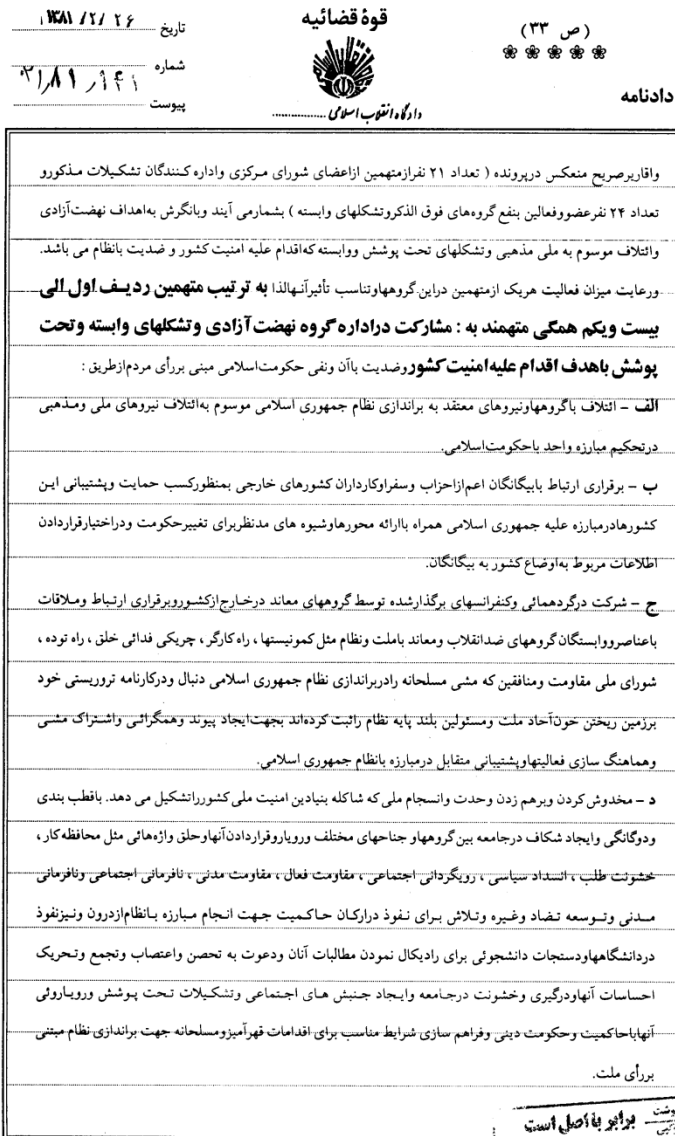 قوهٔ قضائیه
دادگاه انقلاب اسلامی ..............
(ص ۳۳)
❀ ❀ ❀ ❀ ❀
دادنامه
تاریخ ۱۳۸۱ /۲/ ۲۶
شماره
پیوست
واقاریرصریح منعکس درپرونده ( تعداد ۲۱ نفرازمتهمین ازاعضای شورای مرکزی واداره کنندگان تشکیلات مذکورو
تعداد ۲۴ نفرعضووفعالین بنفع گروه‌های فوق الذکروتشکلهای وابسته ) بشمارمی آیند وبانگرش به‌اهداف نهضت‌آزادی
وائتلاف موسوم به ملی مذهبی وتشکلهای تحت پوشش ووابسته که‌اقدام علیه امنیت کشور و ضدیت بانظام می باشد.
ورعایت میزان فعالیت هریک ازمتهمین دراین گروههاوتناسب تأثیرآنهالذا به ترتیب متهمین ردیف اول الی
بیست ویکم همگی متهمند به : مشارکت دراداره گروه نهضت آزادی وتشکلهای وابسته وتحت
پوشش باهدف اقدام علیه‌امنیت کشوروضدیت باآن ونفی حکومت‌اسلامی مبنی بررأی مردم‌ازطریق :
الف – ائتلاف باگروههاونیروهای معتقد به براندازی نظام جمهوری اسلامی موسوم به‌ائتلاف نیروهای ملی ومذهبی
درتحکیم مبارزه واحد باحکومت‌اسلامی.
ب – برقراری ارتباط بابیگانگان اعم‌ازاحزاب وسفراوکارداران کشورهای خارجی بمنظورکسب حمایت وپشتیبانی این
کشورهادرمبارزه علیه جمهوری اسلامی همراه باارائه محورهاوشیوه های مدنظربرای تغییرحکومت ودراختیارقراردادن
اطلاعات مربوط به‌اوضاع کشور به بیگانگان.
ج – شرکت درگردهمائی وکنفرانسهای برگذارشده توسط گروههای معاند درخارج‌ازکشوروبرقراری ارتباط وملاقات
باعناصرووابستگان گروههای ضدانقلاب ومعاند باملت ونظام مثل کمونیستها ، راه کارگر ، چریکی فدائی خلق ، راه توده ،
شورای ملی مقاومت ومنافقین که مشی مسلحانه رادربراندازی نظام جمهوری اسلامی دنبال ودرکارنامه تروریستی خود
برزمین ریختن خون‌آحاد ملت ومسئولین بلند پایه نظام راثبت کرده‌اند بجهت‌ایجاد پیوند وهمگرائی واشتراک مشی
وهماهنگ سازی فعالیتهاوپشتیبانی متقابل درمبارزه بانظام جمهوری اسلامی.
د – مخدوش کردن وبرهم زدن وحدت وانسجام ملی که شاکله بنیادین امنیت ملی کشورراتشکیل می دهد. باقطب بندی
ودوگانگی وایجاد شکاف درجامعه بین گروههاو جناحهای مختلف ورویاروقراردادن‌آنهاوخلق واژه‌هائی مثل محافظه کار ،
خشونت طلب ، انسداد سیاسی ، رویگردانی اجتماعی ، مقاومت فعال ، مقاومت مدنی ، نافرمانی اجتماعی ونافرمانی
مدنی وتوسعه تضاد وغیره وتلاش برای نفوذ درارکان حاکمیت جهت انجام مبارزه بانظام‌ازدرون ونیزنفوذ
دردانشگاههاودستجات دانشجوئی برای رادیکال نمودن مطالبات آنان ودعوت به تحصن واعتصاب وتجمع وتحریک
احساسات آنهاودرگیری وخشونت درجامعه وایجاد جنبش های اجتماعی وتشکیلات تحت پوشش ورویاروئی
آنهاباحاکمیت وحکومت دینی وفراهم سازی شرایط مناسب برای اقدامات قهرآمیزومسلحانه جهت براندازی نظام مبتنی
بررأی ملت.
برابر بااصل است